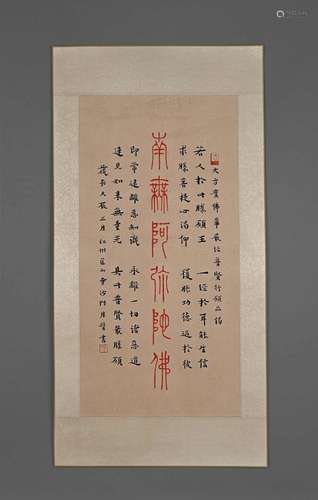 大方廣佛華嚴經普賢行願品偈
若人於此勝願王 一經於耳能生信
求勝菩提心渴仰 獲勝功德過於彼
南無阿彌陀佛
即常遠離惡知識 永離一切諸惡道
速見如來無量光 具此普賢最勝願
江州匡山寺沙門月
書